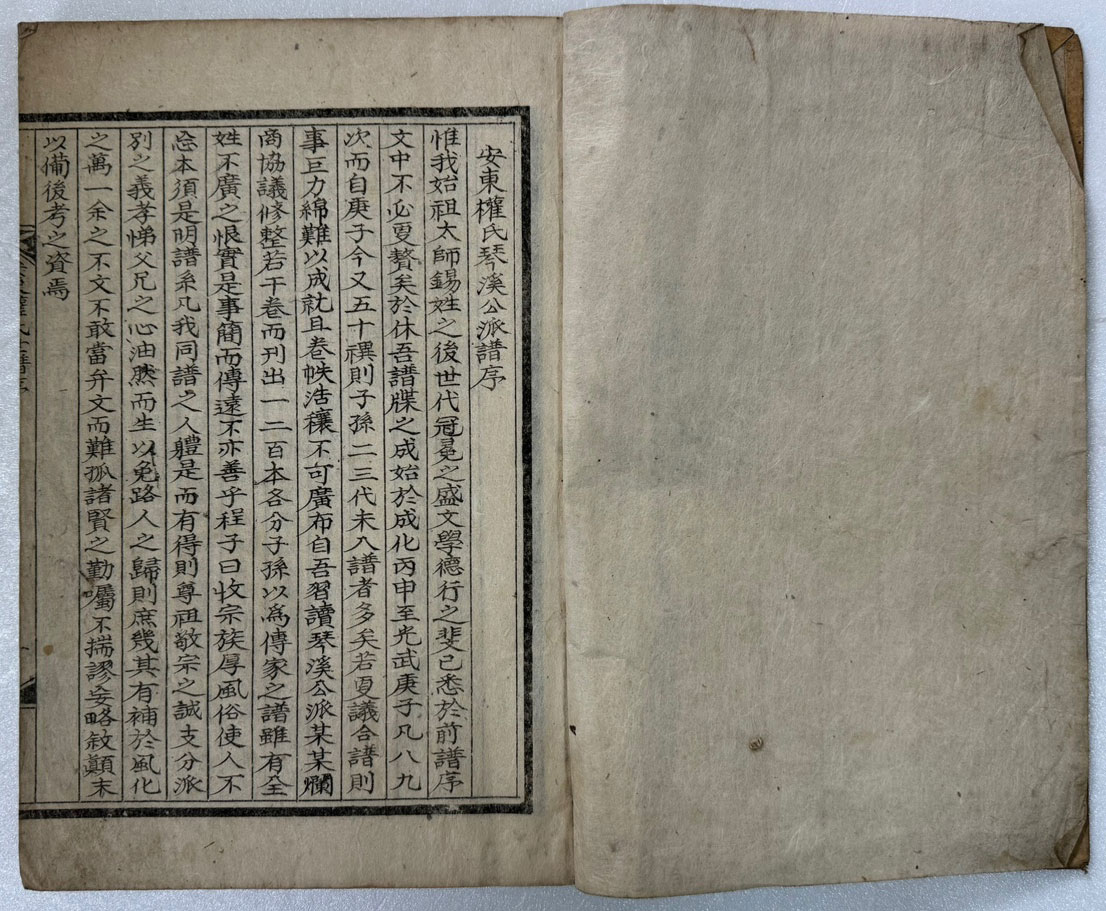 安東權氏琴溪公派譜序
惟我始祖太師錫姓之後世代冠冕之盛文學德行之斐已悉於前譜序
文中不必更贅矣於休吾譜牒之成始於成化丙申至光武庚子凡八九
次而自庚子今又五十禩則子孫二三代未入譜者多矣若更議合譜則
事巨力綿難以成就且卷帙浩穰不可廣布自吾習讀琴溪公派某某爛
商協議修整若干卷而刊出一二百本各分子孫以爲傳家之譜雖有全
姓不廣之恨實是事簡而傳遠不亦善乎程子曰收宗族厚風俗使人不
忘本須是明譜系凡我同譜之人體是而有得則尊祖敬宗之誠支分派
別之義孝悌父兄之心油然而生以免路人之歸則庶幾其有補於風化
之萬一余之不文不敢當弁文而難孤諸賢之勤囑不揣謬妄略敘顚末
以備後考之資焉